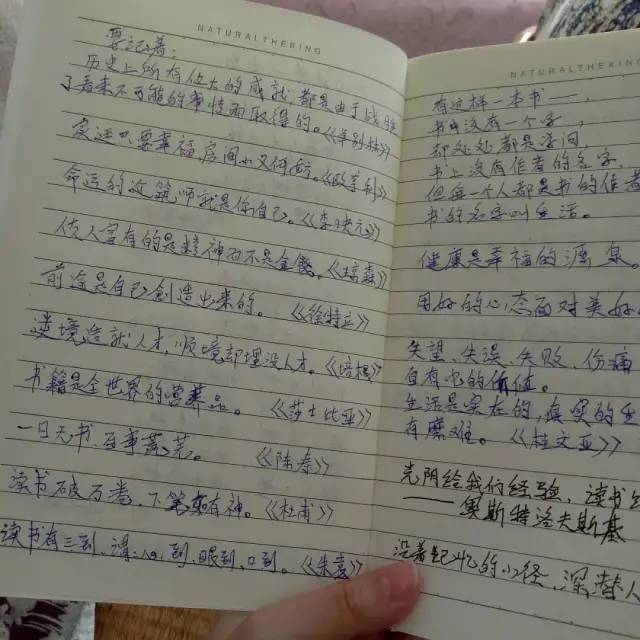 NATURALTHEKING
要记着：
历史上所有伟大的成就，都是由于战胜
了看来不可能的事情而取得的。《卓别林》
只要幸福，房间小又何妨。
命运的建筑师就是你自己。
使人富有的是精神而不是金钱。
前途是自己创造出来的。《徐特立》
逆境造就人才，顺境却埋没人才。
书籍是全世界的营养品。《莎士比亚》
一日无书，百事荒芜。《陈寿》
读书破万卷，下笔如有神。《杜甫》
读书有三到，谓心到，眼到，口到。《朱熹》
NATURALTHEKING
有这样一本书——，
书中没有一个字，
却处处都是学问，
书上没有作者的名字
但每一个人都是书的作者
书的名字叫生活。
健康是幸福的源泉。
用好的心态面对美好
失望、失误、失败、伤痛
自有它的价值。
生活是实在的，真实的生
有磨难。
光阴给我们经验，读书
——奥斯特洛夫斯基
沿着记忆的小径，深替人